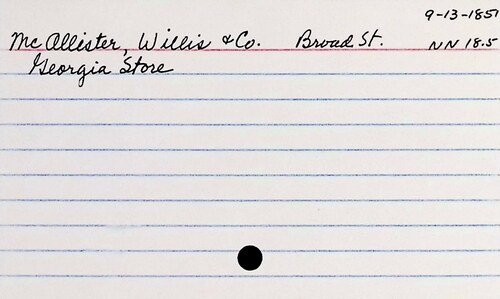 9-13-1851
McAllister, Willis & Co. Broad St. NN 18.5
Georgia Store